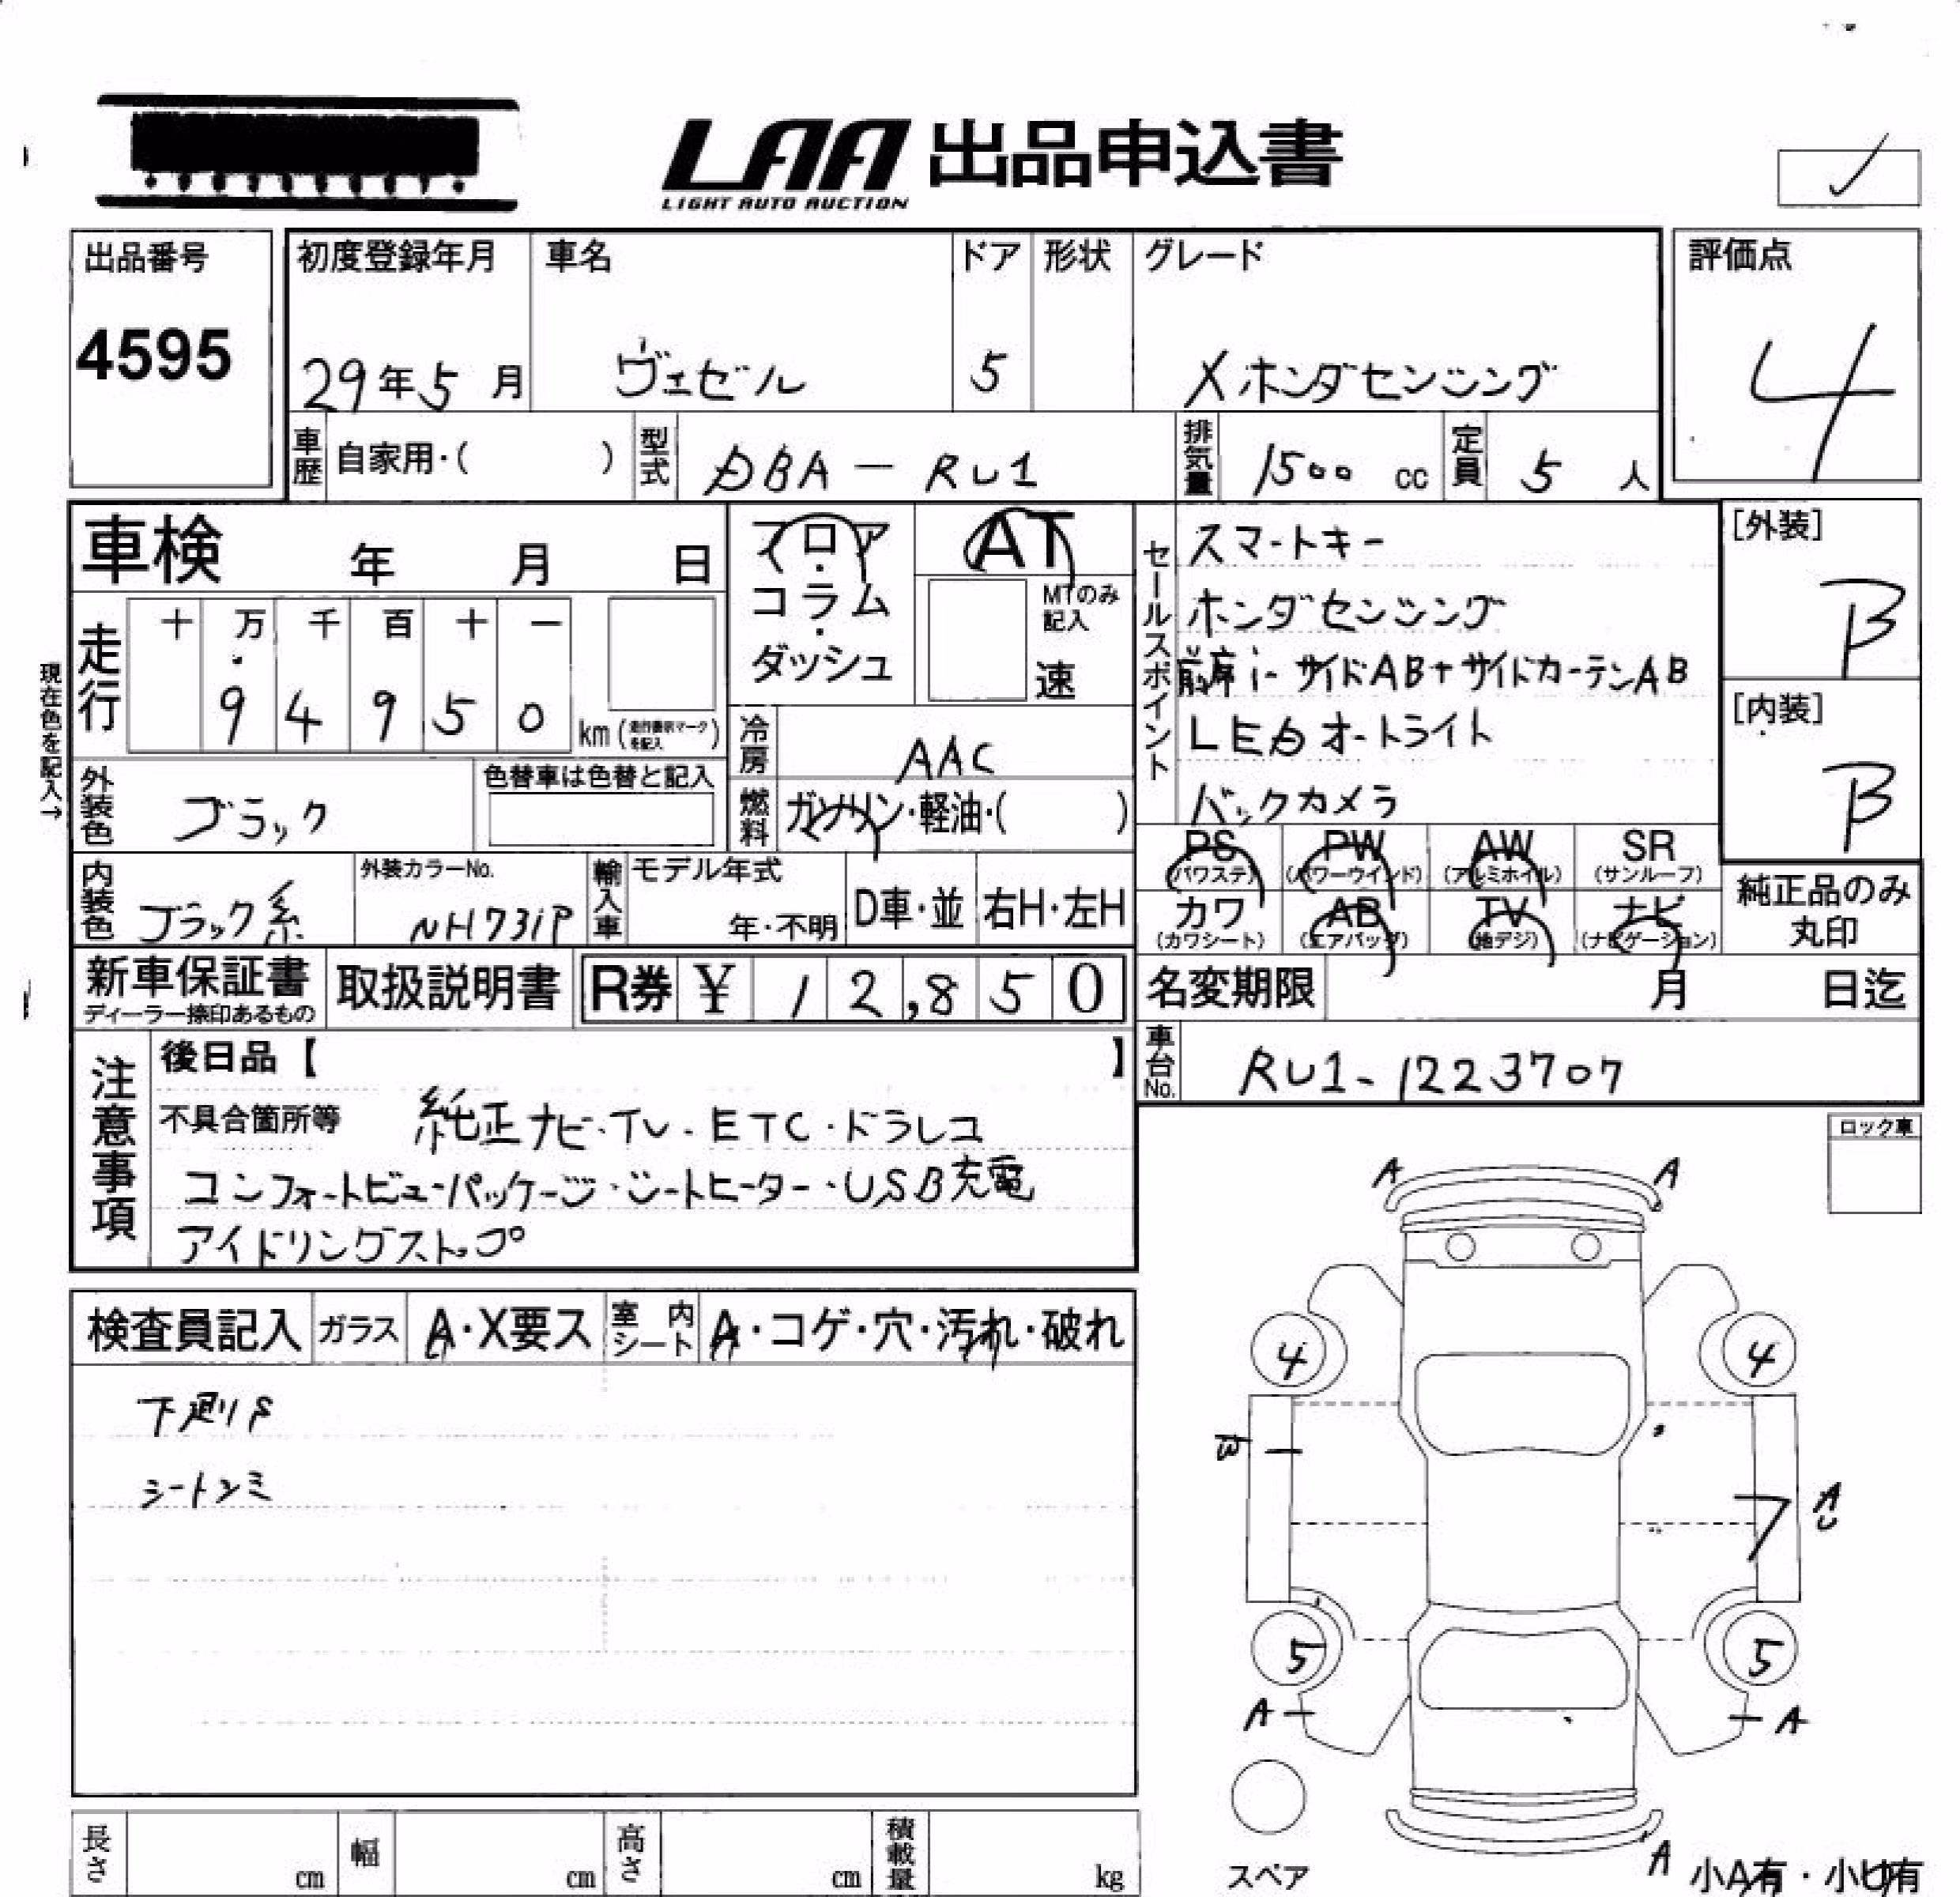 LAA 出品申込書
LIGHT AUTO AUCTION
出品番号
4595
初度登録年月
29年5月
車名
ヴェゼル
ドア
5
形状
グレード
Xホンダセンシング
評価点
4
車歴
自家用・( )
型式
DBA-RU1
排気量
1500 cc
定員
5 人
車検 年 月 日
フロア・コラム・ダッシュ
AT
MTのみ記入
速
セールスポイント
スマートキー
ホンダセンシング
前席i-サイドAB+サイドカーテンAB
LEDオートライト
バックカメラ
[外装]
B
[内装]
B
現在色を記入→
走行
十 万 千 百 十 一
9 4 9 5 0 km
冷房
AAC
燃料
ガソリン・軽油・( )
外装色
ブラック
色替車は色替と記入
PS (パワステ)
PW (パワーウインド)
AW (アルミホイル)
SR (サンルーフ)
カワ (カワシート)
AB (エアバッグ)
TV (地デジ)
ナビ (ナビゲーション)
純正品のみ
丸印
内装色
ブラック系
外装カラーNo.
NH731P
輸入車
モデル年式
年・不明
D車・並
右H・左H
新車保証書
ディーラー捺印あるもの
取扱説明書
R券 ¥ 12,850
名変期限 月 日迄
車台No.
RU1-1223707
注意事項
後日品【 】
不具合箇所等 純正ナビ・TV・ETC・ドラレコ
コンフォートビューパッケージ・シートヒーター・USB充電
アイドリングストップ
ロック車
検査員記入
ガラス
A・X要ス
室内シート
A・コゲ・穴・汚れ・破れ
シートシミ
A A
4 4
A
5 5
A A
A
スペア
小A有・小U有
長さ cm
幅 cm
高さ cm
積載量 kg